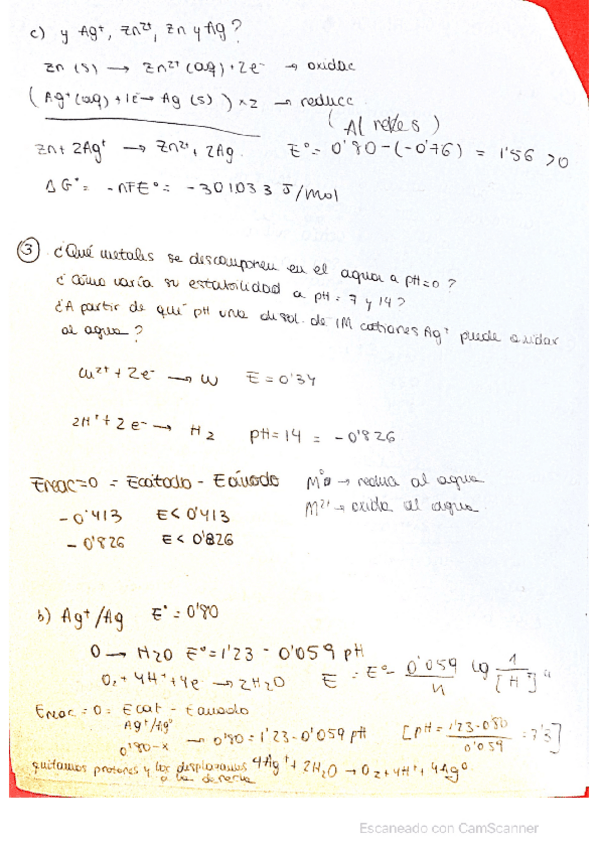 c) y Ag⁺, Zn²⁺, Zn y Ag?
Zn (s) → Zn²⁺ (aq) + 2e⁻ → oxidac
(Ag⁺(aq) + 1e⁻ → Ag (s)) x2 → reducc
(Al revés)
Zn + 2Ag⁺ → Zn²⁺ + 2Ag. E° = 0'80 - (-0'76) = 1'56 > 0
ΔG° = -nFE° = -301033 J/mol
③ ¿Qué metales se descomponen en el agua a pH=0?
¿Cómo varía su estabilidad a pH = 7 y 14?
¿A partir de qué pH una disol. de 1M cationes Ag⁺ puede oxidar
al agua?
Cu²⁺ + 2e⁻ → Cu E = 0'34
2H⁺ + 2e⁻ → H₂ pH=14 = -0'826
Ereac=0 = Ecátodo - Eánodo M⁰ → reduce al agua
-0'413 E < 0'413 M²⁺ → oxida al agua
-0'826 E < 0'826
b) Ag⁺/Ag E° = 0'80
O → H₂O E° = 1'23 - 0'059 pH
O₂ + 4H⁺ + 4e → 2H₂O E = E° - 0'059/n lg 1/[H⁺]⁴
Ereac = 0 = Ecat - Eánodo
Ag⁺/Ag⁰
0'80-x → 0'80 = 1'23 - 0'059 pH [pH = 1'23-0'80/0'059 = 7'3]
quitamos protones y los desplazamos 4Ag⁺ + 2H₂O → O₂ + 4H⁺ + 4Ag⁰
a la derecha
Escaneado con CamScanner